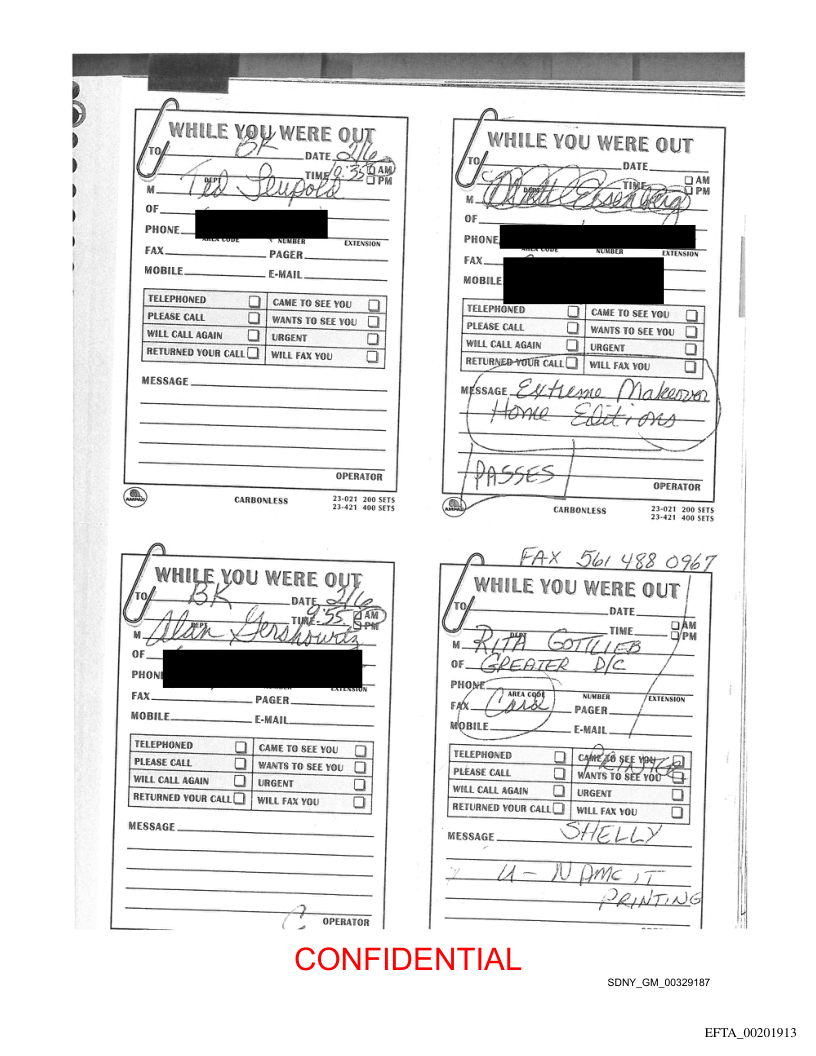 WHILE YOU WERE OUT
TO BK DATE 2/6
TIME 9:35 AM
PM
M Ted Leupold
DEPT
OF
PHONE
AREA CODE NUMBER EXTENSION
FAX PAGER
MOBILE E-MAIL
TELEPHONED CAME TO SEE YOU
PLEASE CALL WANTS TO SEE YOU
WILL CALL AGAIN URGENT
RETURNED YOUR CALL WILL FAX YOU
MESSAGE
OPERATOR
AMPAD CARBONLESS 23-021 200 SETS
23-421 400 SETS
WHILE YOU WERE OUT
TO DATE
TIME AM
PM
M Eisenberg
DEPT
OF
PHONE
AREA CODE NUMBER EXTENSION
FAX
MOBILE
TELEPHONED CAME TO SEE YOU
PLEASE CALL WANTS TO SEE YOU
WILL CALL AGAIN URGENT
RETURNED YOUR CALL WILL FAX YOU
MESSAGE Extreme Makeover
Home Editions
PASSES
OPERATOR
AMPAD CARBONLESS 23-021 200 SETS
23-421 400 SETS
WHILE YOU WERE OUT
TO BK DATE 2/6
TIME 9:55 AM
PM
M Alan Gershowitz
DEPT
OF
PHONE
NUMBER EXTENSION
FAX PAGER
MOBILE E-MAIL
TELEPHONED CAME TO SEE YOU
PLEASE CALL WANTS TO SEE YOU
WILL CALL AGAIN URGENT
RETURNED YOUR CALL WILL FAX YOU
MESSAGE
OPERATOR
FAX 561 488 0967
WHILE YOU WERE OUT
TO DATE
TIME AM
PM
M RITA GOTTLIEB
DEPT
OF GREATER D/C
PHONE
AREA CODE NUMBER EXTENSION
FAX Card PAGER
MOBILE E-MAIL
TELEPHONED CAME TO SEE YOU
PRINTER
PLEASE CALL WANTS TO SEE YOU
WILL CALL AGAIN URGENT
RETURNED YOUR CALL WILL FAX YOU
MESSAGE SHELLY
U-NAME IT
PRINTING
CONFIDENTIAL
SDNY_GM_00329187
EFTA_00201913